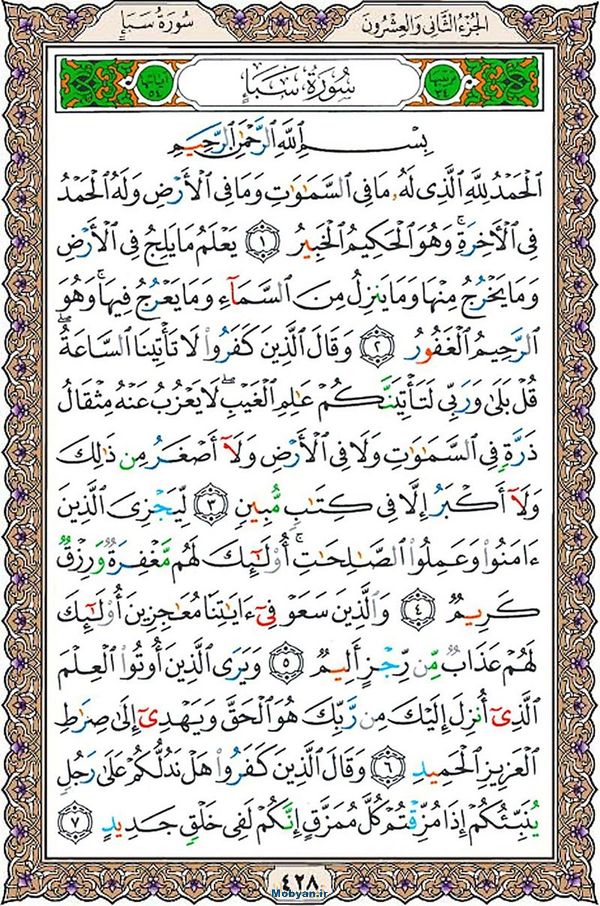 الجزء الثاني والعشرون
سورة سبإ
ترتيبها ٣٤
سُورَةُ سَبَإٍ
آياتها ٥٤
بِسْمِ ٱللَّهِ ٱلرَّحْمَٰنِ ٱلرَّحِيمِ
ٱلْحَمْدُ لِلَّهِ ٱلَّذِى لَهُۥ مَا فِى ٱلسَّمَٰوَٰتِ وَمَا فِى ٱلْأَرْضِ وَلَهُ ٱلْحَمْدُ
فِى ٱلْأَخِرَةِ ۚ وَهُوَ ٱلْحَكِيمُ ٱلْخَبِيرُ ١ يَعْلَمُ مَا يَلِجُ فِى ٱلْأَرْضِ
وَمَا يَخْرُجُ مِنْهَا وَمَا يَنزِلُ مِنَ ٱلسَّمَآءِ وَمَا يَعْرُجُ فِيهَا ۚ وَهُوَ
ٱلرَّحِيمُ ٱلْغَفُورُ ٢ وَقَالَ ٱلَّذِينَ كَفَرُوا۟ لَا تَأْتِينَا ٱلسَّاعَةُ ۖ
قُلْ بَلَىٰ وَرَبِّى لَتَأْتِيَنَّكُمْ عَٰلِمِ ٱلْغَيْبِ ۖ لَا يَعْزُبُ عَنْهُ مِثْقَالُ
ذَرَّةٍ فِى ٱلسَّمَٰوَٰتِ وَلَا فِى ٱلْأَرْضِ وَلَآ أَصْغَرُ مِن ذَٰلِكَ
وَلَآ أَكْبَرُ إِلَّا فِى كِتَٰبٍ مُّبِينٍ ٣ لِّيَجْزِىَ ٱلَّذِينَ
ءَامَنُوا۟ وَعَمِلُوا۟ ٱلصَّٰلِحَٰتِ ۚ أُو۟لَٰٓئِكَ لَهُم مَّغْفِرَةٌ وَرِزْقٌ
كَرِيمٌ ٤ وَٱلَّذِينَ سَعَوْ فِىٓ ءَايَٰتِنَا مُعَٰجِزِينَ أُو۟لَٰٓئِكَ
لَهُمْ عَذَابٌ مِّن رِّجْزٍ أَلِيمٌ ٥ وَيَرَى ٱلَّذِينَ أُوتُوا۟ ٱلْعِلْمَ
ٱلَّذِىٓ أُنزِلَ إِلَيْكَ مِن رَّبِّكَ هُوَ ٱلْحَقَّ وَيَهْدِىٓ إِلَىٰ صِرَٰطِ
ٱلْعَزِيزِ ٱلْحَمِيدِ ٦ وَقَالَ ٱلَّذِينَ كَفَرُوا۟ هَلْ نَدُلُّكُمْ عَلَىٰ رَجُلٍ
يُنَبِّئُكُمْ إِذَا مُزِّقْتُمْ كُلَّ مُمَزَّقٍ إِنَّكُمْ لَفِى خَلْقٍ جَدِيدٍ ٧
٤٢٨
Mobyan.ir